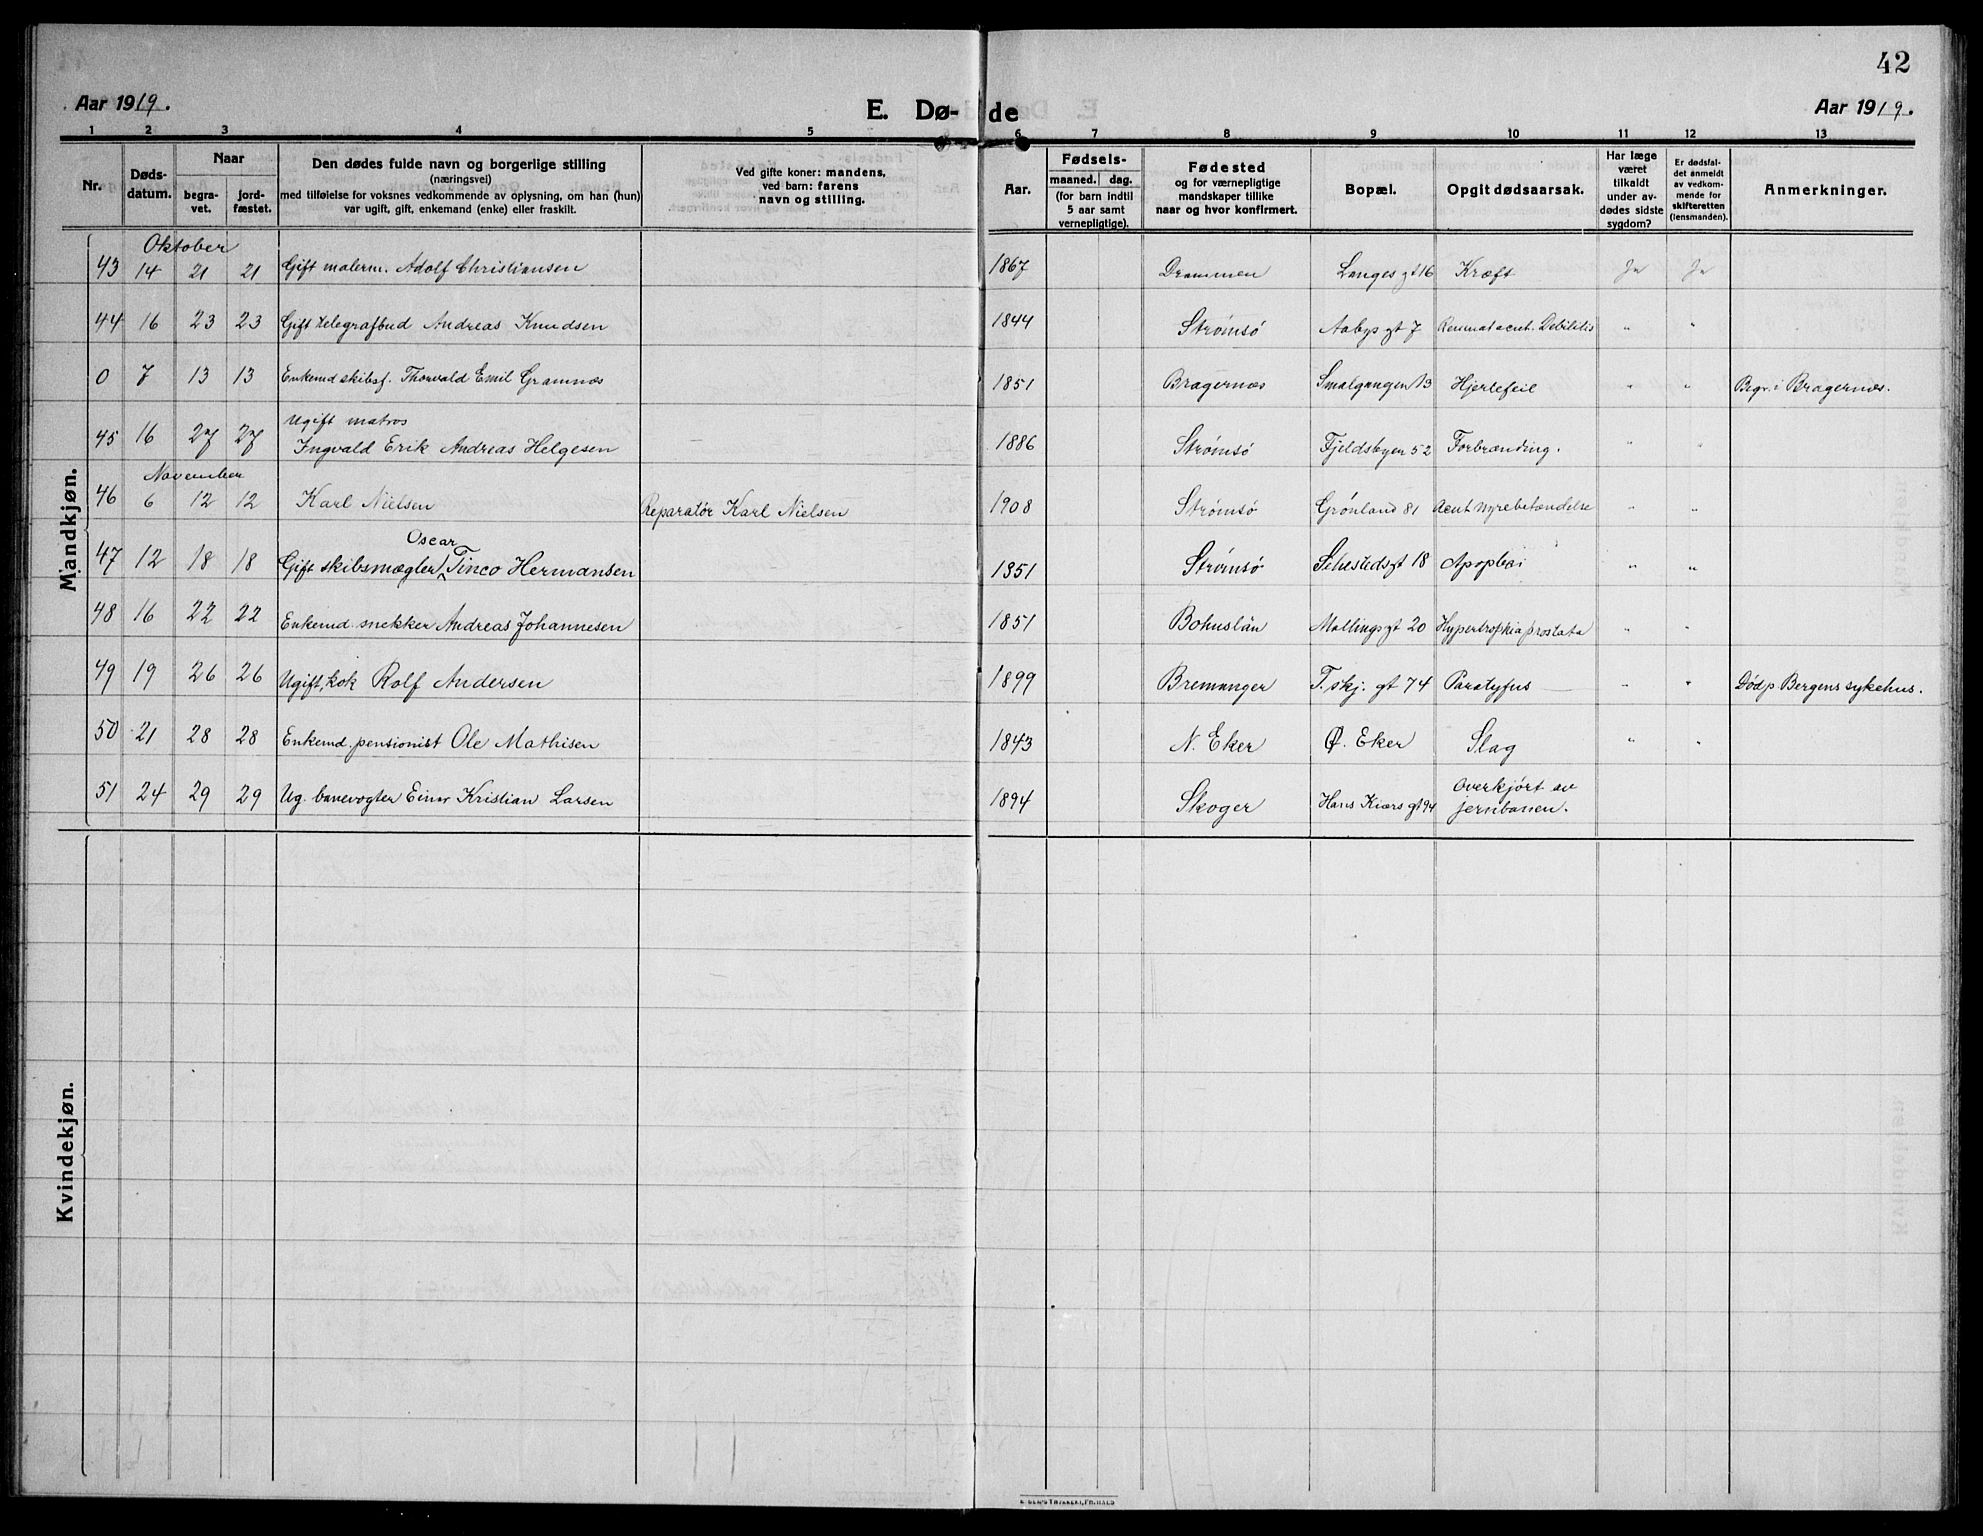 42
Aar 1919. E. Dø- de Aar 1919.
1 2 3 4 5 6 7 8 9 10 11 12 13
Nr. Døds-datum. Naar begra-vet. jord-fæstet. Den dødes fulde navn og borgerlige stilling (næringsvei) med tilføielse for voksnes vedkommende av oplysning, om han (hun) var ugift, gift, enkemand (enke) eller fraskilt. Ved gifte koner: mandens, ved barn: farens navn og stilling. Aar. Fødsels- maaned. dag. (for barn indtil 5 aar samt vernepligtige). Fødested og for værnepligtige mandskaper tillike naar og hvor konfirmert. Bopæl. Opgit dødsaarsak. Har læge været tilkaldt under av-dødes sidste sygdom? Er dødsfal-det anmeldt av vedkom-mende for skifteretten (lensmanden). Anmerkninger.
Mandkjøn.
Oktober
43 14 21 21 Gift malerm. Adolf Christiansen 1867 Drammen Langes gt 16 Kræft Ja Ja
44 16 23 23 Gift telegrafbud Andreas Knudsen 1844 Strømsö Aabys gt 7 Reumat acut. Debilitis " "
0 7 13 13 Enkemd skibsf. Thorvald Emil Gramnæs 1851 Bragernæs Smalgangen 13 Hjertefeil " " Begr. i Bragernæs.
Ugift matros
45 16 27 27 Ingvald Erik Andreas Helgesen 1886 Strømsö Fjeldsbyen 52 Forbrænding. " "
November
46 6 12 12 Karl Nielsen Reparatør Karl Nielsen 1908 Strømsö Grønland 81 Acut Nyrebetændelse " "
Oscar
47 12 18 18 Gift skibsmægler Tinco Hermansen 1851 Strømsö Sehestedsgt 18 Apoplexi " "
48 16 22 22 Enkemd. snekker Andreas Johannesen 1851 Bohuslän Mallingsgt 20 Hypertrophia prostata " "
49 19 26 26 Ugift, kok Rolf Andersen 1899 Bremanger T. skj. gt 74 Paratyfus " " Död p Bergens sykehus.
50 21 28 28 Enkemd. pensionist Ole Mathisen 1843 N. Eker Ø. Eker Slag " "
51 24 29 29 Ug. banevogter Einar Kristian Larsen 1894 Skoger Hans Kiærs gt 94 Overkjört av
jernbanen.
Kvindekjøn.